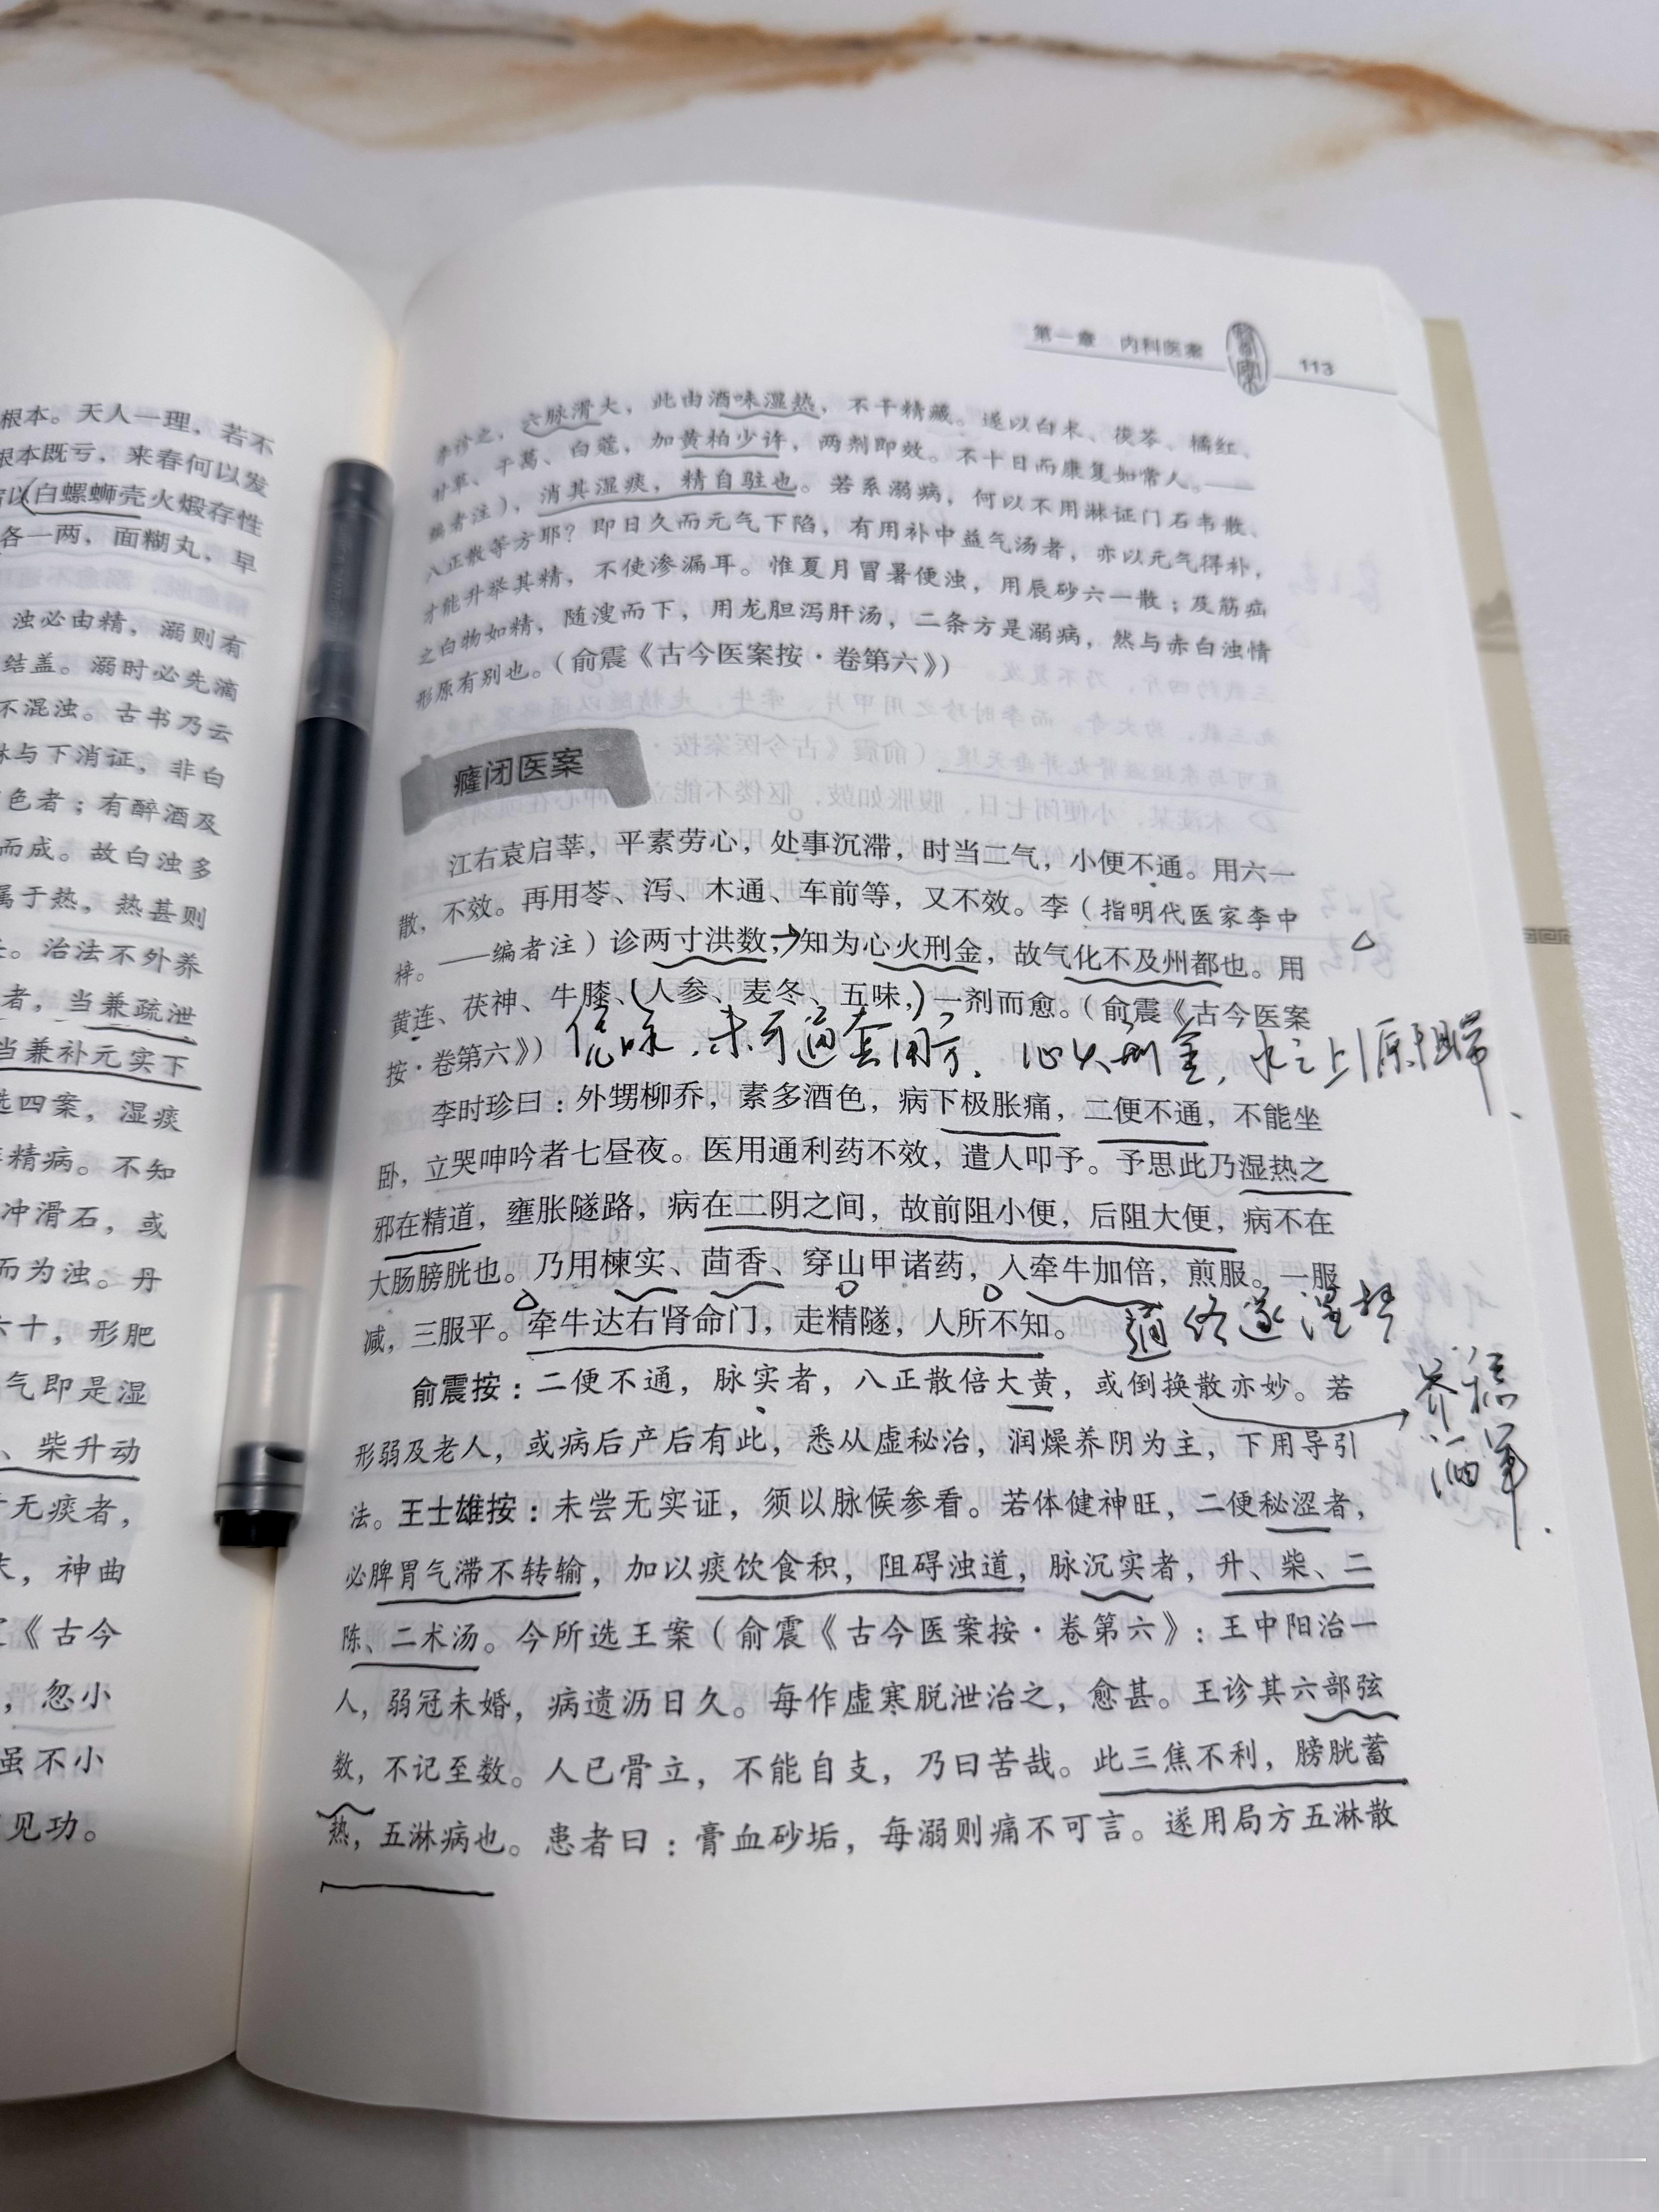 根本。天人一理，若不
根本既亏，来春何以发
以白螺蛳壳火煅存性
各一两，面糊丸，早
浊必由精，溺则有
结盖。溺时必先滴
不混浊。古书乃云
淋与下消证，非白
色者；有醉酒及
而成。故白浊多
属于热，热甚则
。治法不外养
者，当兼疏泄
当兼补元实下
选四案，湿痰
精病。不知
冲滑石，或
而为浊。丹
六十，形肥
气即是湿
、柴升动
无痰者，
，神曲
《古今
，忽小
虽不小
见功。
第一章 内科医案 113
李诊之，六脉滑大，此由酒味湿热，不干精藏。遂以白术、茯苓、橘红、
甘草、干葛、白蔻，加黄柏少许，两剂即效。不十日而康复如常人。——
编者注），消其湿痰，精自驻也。若系溺病，何以不用淋证门石韦散、
八正散等方耶？即日久而元气下陷，有用补中益气汤者，亦以元气得补，
才能升举其精，不使渗漏耳。惟夏月冒暑便浊，用辰砂六一散；及筋疝
之白物如精，随溲而下，用龙胆泻肝汤，二条方是溺病，然与赤白浊情
形原有别也。（俞震《古今医案按·卷第六》）
癃闭医案
江右袁启莘，平素劳心，处事沉滞，时当二气，小便不通。用六一
散，不效。再用苓、泻、木通、车前等，又不效。李（指明代医家李中
梓。——编者注）诊两寸洪数，知为心火刑金，故气化不及州都也。用
黄连、茯神、牛膝、人参、麦冬、五味，一剂而愈。（俞震《古今医案
按·卷第六》）
心火刑金，水之上源
李时珍曰：外甥柳乔，素多酒色，病下极胀痛，二便不通，不能坐
卧，立哭呻吟者七昼夜。医用通利药不效，遣人叩予。予思此乃湿热之
邪在精道，壅胀隧路，病在二阴之间，故前阻小便，后阻大便，病不在
大肠膀胱也。乃用楝实、茴香、穿山甲诸药，入牵牛加倍，煎服。一服
减，三服平。牵牛达右肾命门，走精隧，人所不知。
俞震按：二便不通，脉实者，八正散倍大黄，或倒换散亦妙。若
形弱及老人，或病后产后有此，悉从虚秘治，润燥养阴为主，下用导引
法。王士雄按：未尝无实证，须以脉候参看。若体健神旺，二便秘涩者，
必脾胃气滞不转输，加以痰饮食积，阻碍浊道，脉沉实者，升、柴、二
陈、二术汤。今所选王案（俞震《古今医案按·卷第六》：王中阳治一
人，弱冠未婚，病遗沥日久。每作虚寒脱泄治之，愈甚。王诊其六部弦
数，不记至数。人已骨立，不能自支，乃曰苦哉。此三焦不利，膀胱蓄
热，五淋病也。患者曰：膏血砂垢，每溺则痛不可言。遂用局方五淋散